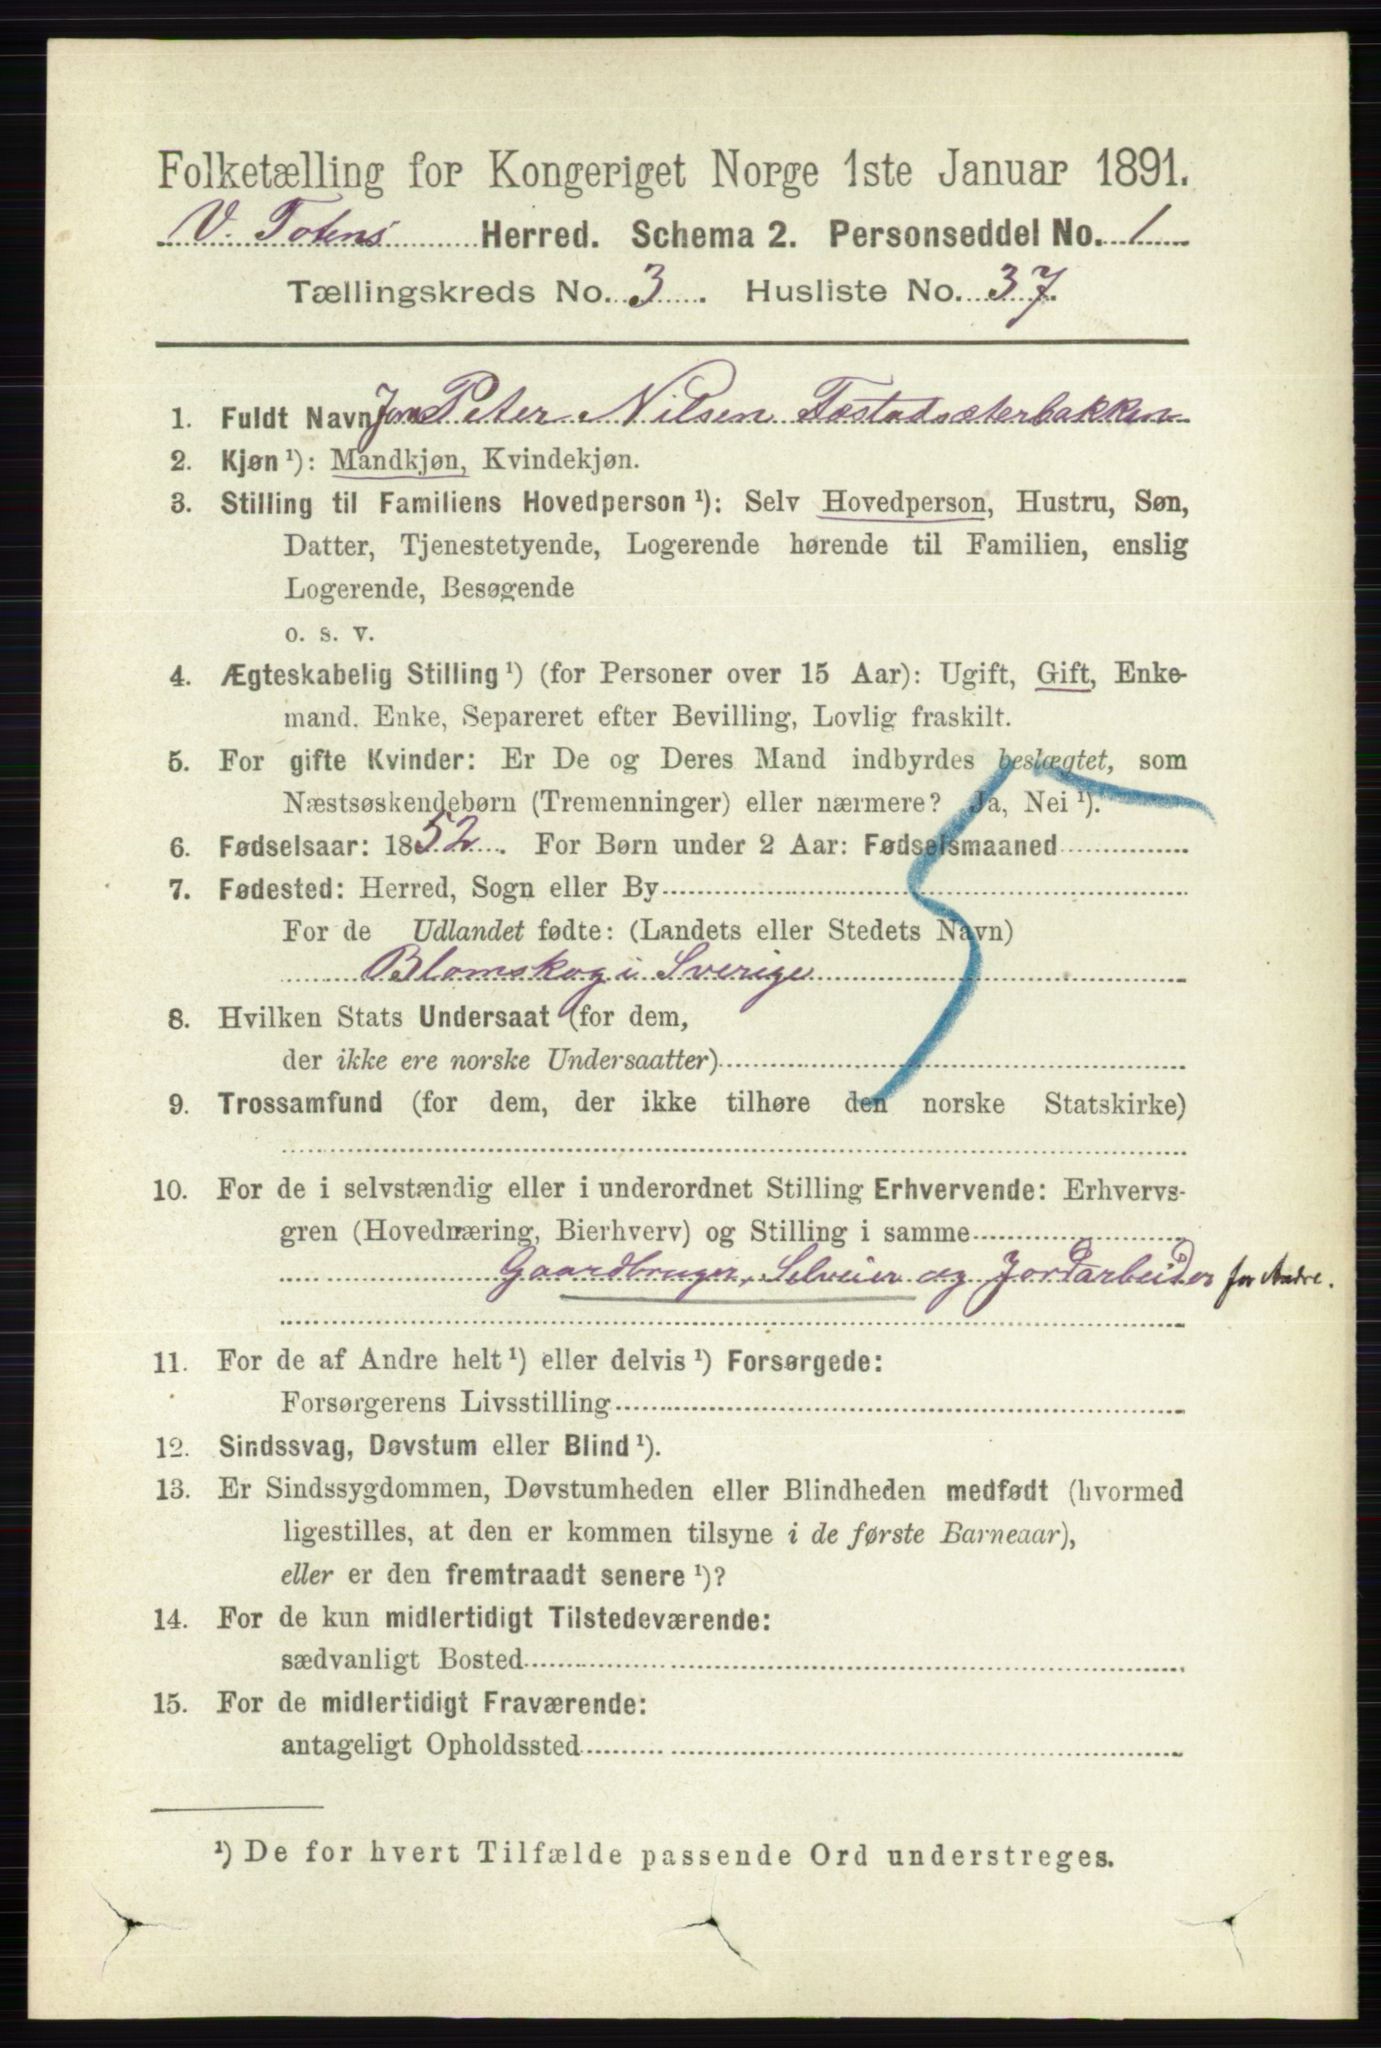 Folketælling for Kongeriget Norge 1ste Januar 1891.
V. Totens Herred. Schema 2. Personseddel No. 1
Tællingskreds No. 3. Husliste No. 37.
1. Fuldt Navn Jens Peter Nilsen Fæstadsæterbakken
2. Kjøn ¹): Mandkjøn, Kvindekjøn.
3. Stilling til Familiens Hovedperson ¹): Selv Hovedperson, Hustru, Søn,
Datter, Tjenestetyende, Logerende hørende til Familien, enslig
Logerende, Besøgende
o. s. v.
4. Ægteskabelig Stilling ¹) (for Personer over 15 Aar): Ugift, Gift, Enke-
mand, Enke, Separeret efter Bevilling, Lovlig fraskilt.
5. For gifte Kvinder: Er De og Deres Mand indbyrdes beslægtet, som
Næstsøskendebørn (Tremenninger) eller nærmere? Ja, Nei ¹).
6. Fødselsaar: 1852. For Børn under 2 Aar: Fødselsmaaned
7. Fødested: Herred, Sogn eller By
For de Udlandet fødte: (Landets eller Stedets Navn)
Blomskog i Sverige
8. Hvilken Stats Undersaat (for dem,
der ikke ere norske Undersaatter)
9. Trossamfund (for dem, der ikke tilhøre den norske Statskirke)
10. For de i selvstændig eller i underordnet Stilling Erhvervende: Erhvervs-
gren (Hovednæring, Bierhverv) og Stilling i samme
Gaardbruger, Selveier og Jordarbeider for Andre.
11. For de af Andre helt ¹) eller delvis ¹) Forsørgede:
Forsørgerens Livsstilling
12. Sindssvag, Døvstum eller Blind ¹).
13. Er Sindssygdommen, Døvstumheden eller Blindheden medfødt (hvormed
ligestilles, at den er kommen tilsyne i de første Barneaar),
eller er den fremtraadt senere ¹)?
14. For de kun midlertidigt Tilstedeværende:
sædvanligt Bosted
15. For de midlertidigt Fraværende:
antageligt Opholdssted
¹) De for hvert Tilfælde passende Ord understreges.